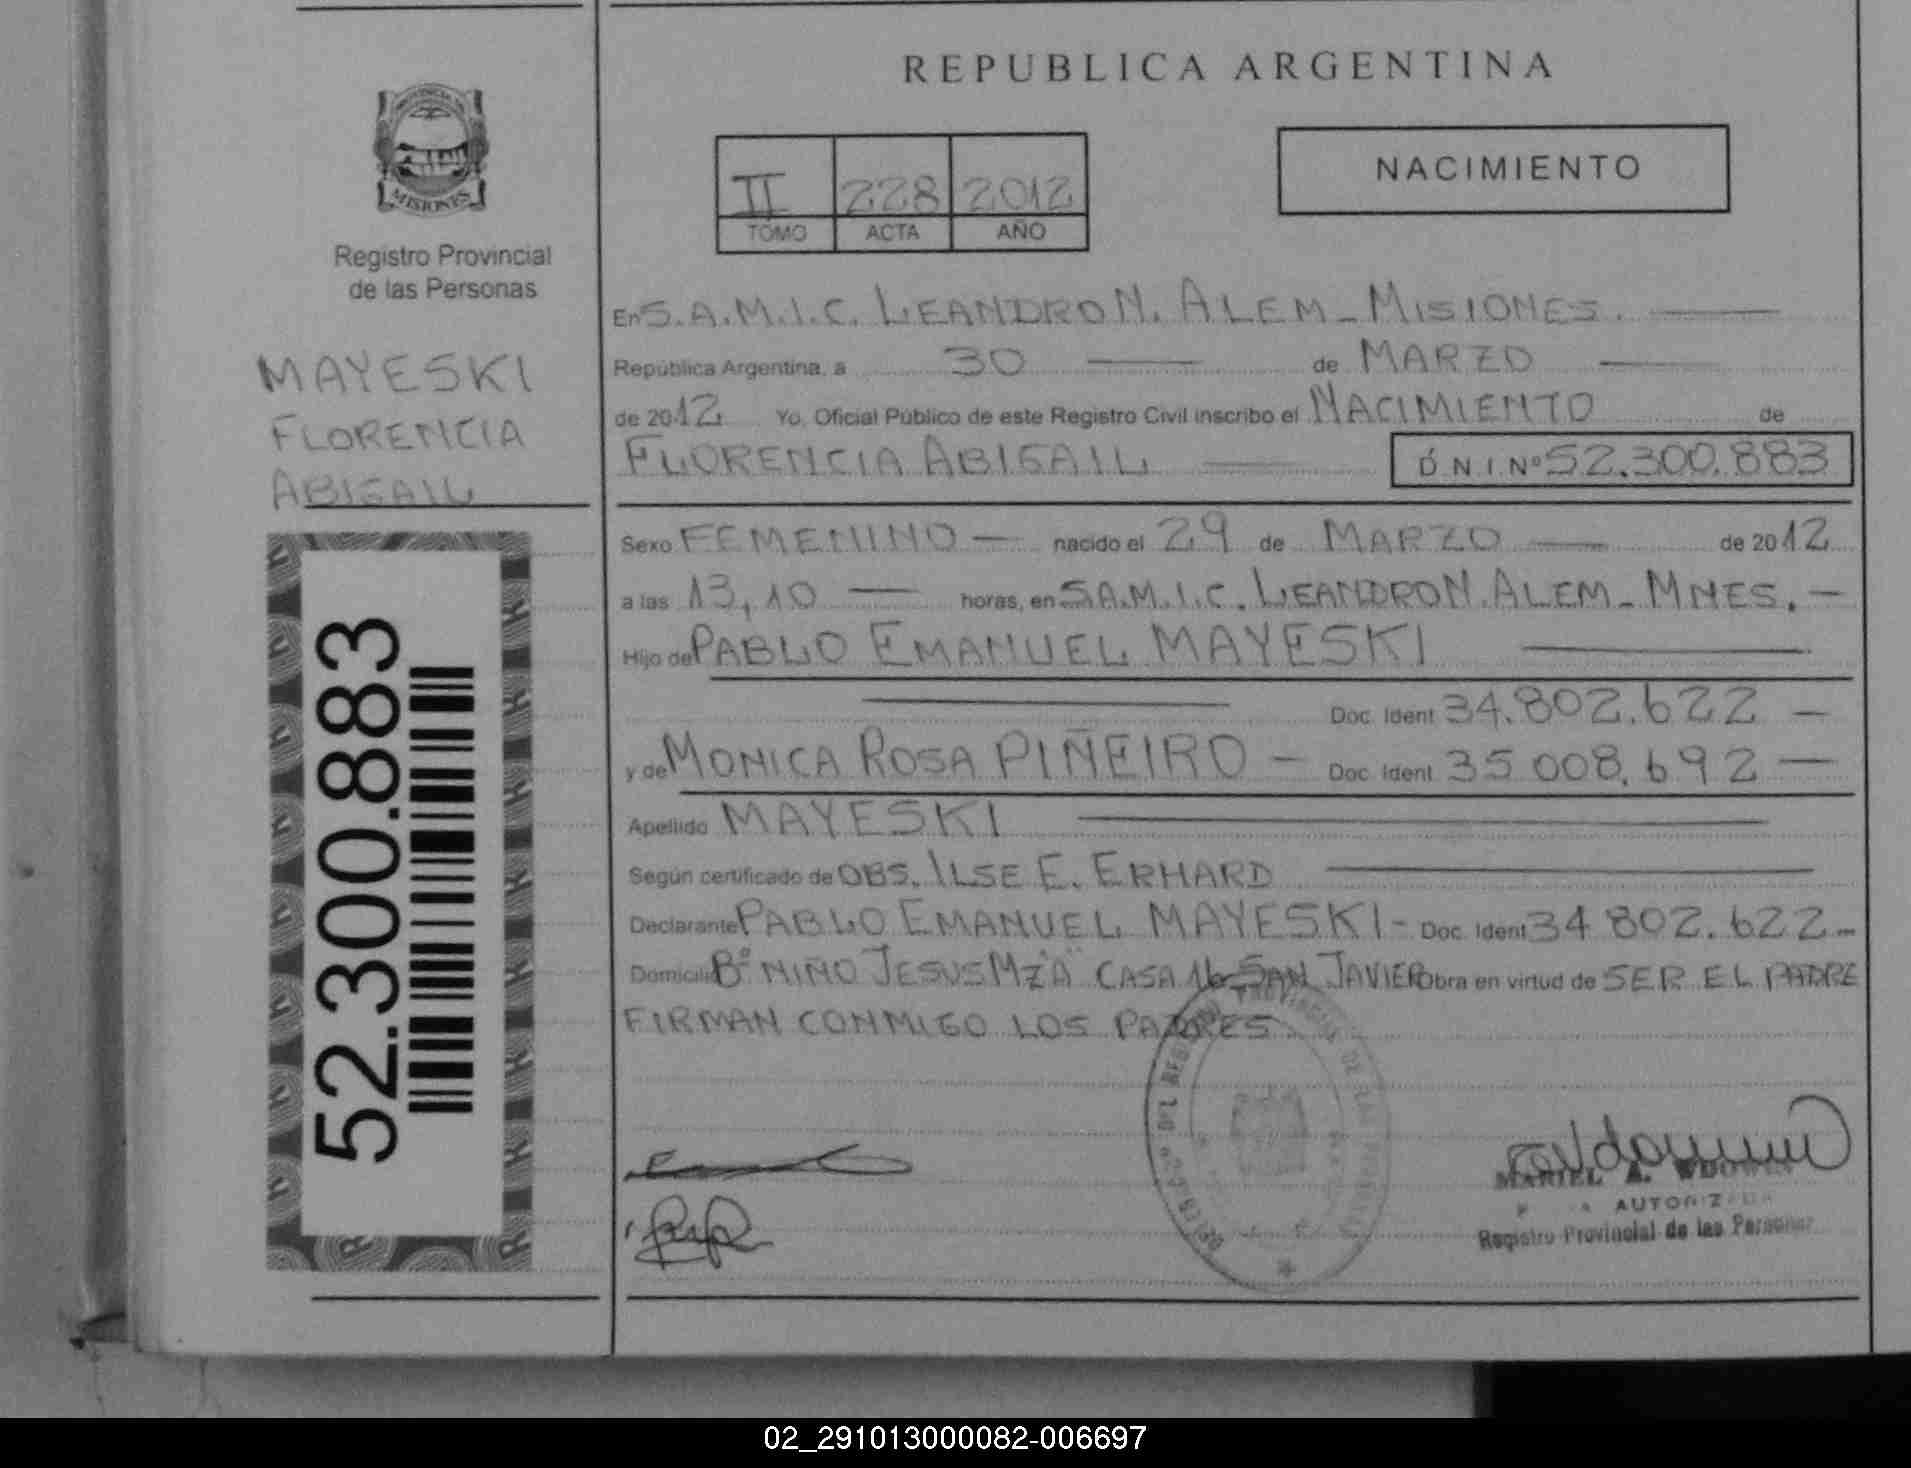 REPUBLICA ARGENTINA
PROVINCIA DE
MISIONES
Registro Provincial
de las Personas
II 228 2012
TOMO ACTA AÑO
NACIMIENTO
MAYESKI
FLORENCIA
ABIGAIL
52.300.883
En S.A.M.I.C. LEANDRO N. ALEM - MISIONES.
República Argentina, a 30 de MARZO
de 2012 Yo, Oficial Público de este Registro Civil inscribo el NACIMIENTO de
FLORENCIA ABIGAIL D N I Nº 52.300.883
Sexo FEMENINO - nacido el 29 de MARZO de 2012
a las 13,10 horas, en S.A.M.I.C. LEANDRO N. ALEM - MNES. -
Hijo de PABLO EMANUEL MAYESKI
Doc. Ident 34.802.622 -
y de MONICA ROSA PIÑEIRO - Doc. Ident 35.008.692 -
Apellido MAYESKI
Según certificado de OBS. ILSE E. ERHARD
Declarante PABLO EMANUEL MAYESKI - Doc. Ident 34 802.622 -
Domicilio Bº NIÑO JESUS Mz "A" CASA 16 - SAN JAVIER Obra en virtud de SER EL PADRE
FIRMAN CONMIGO LOS PADRES.
MARIEL A.
AUTORIZADA
Registro Provincial de las Personas
02_291013000082-006697